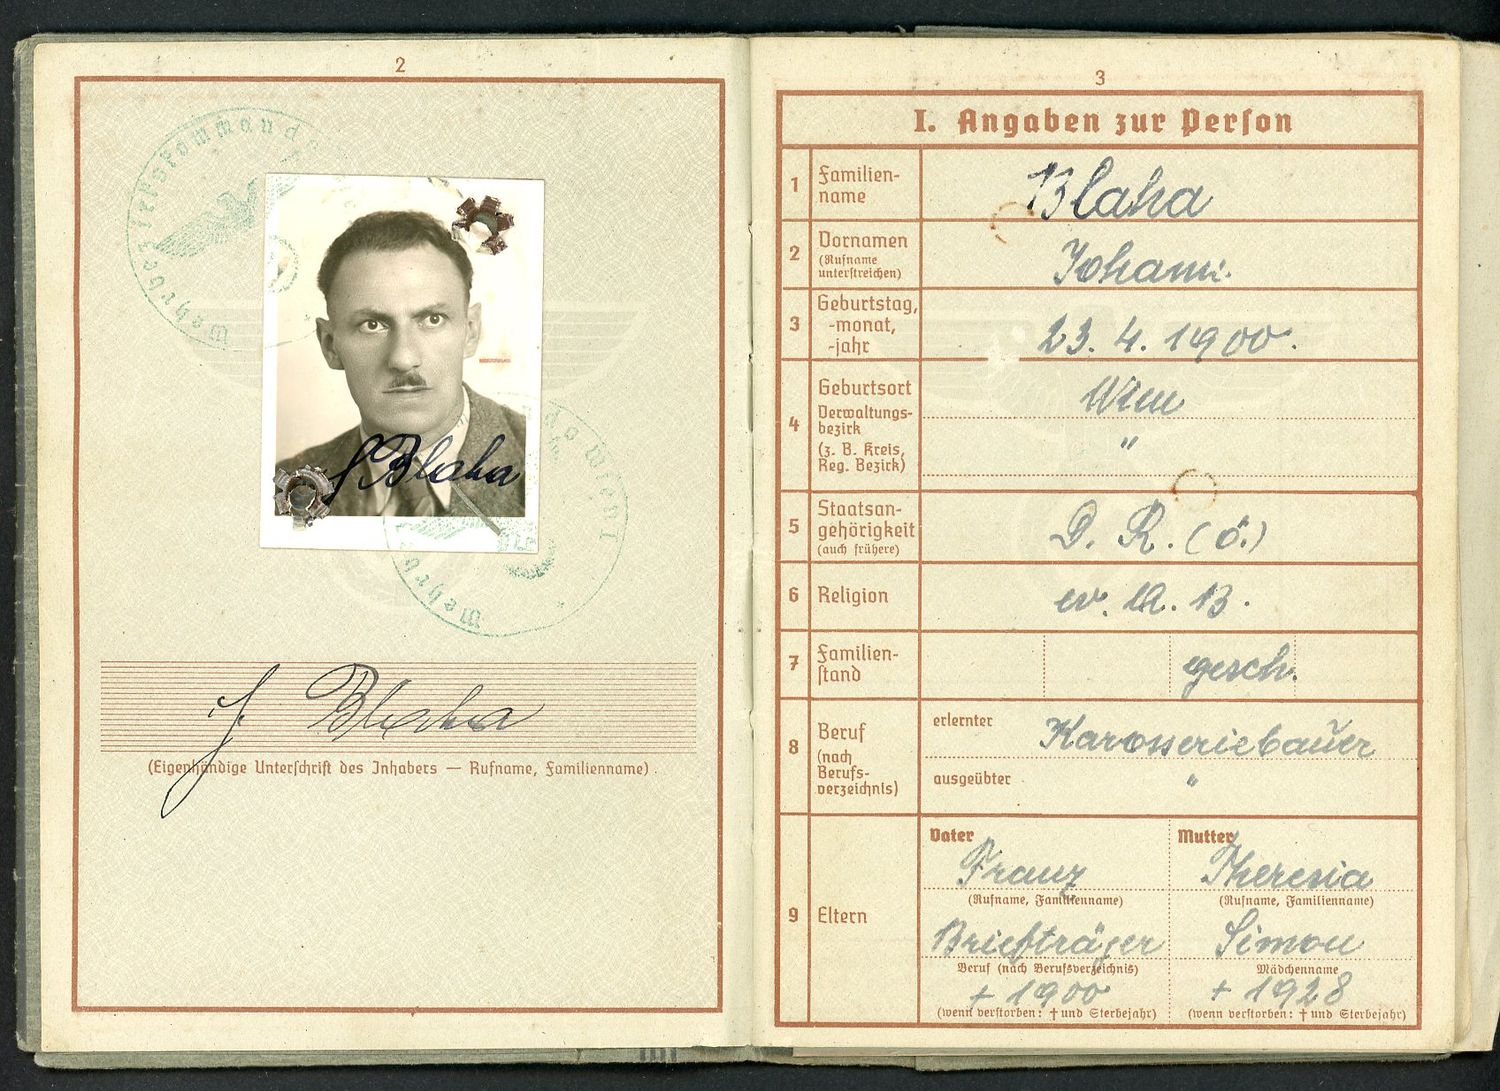 2
Wehrbezirkskommando
J Blaha
Wehrbezirkskommando Wien I
J. Blaha
(Eigenhändige Unterschrift des Inhabers — Rufname, Familienname)
3
I. Angaben zur Person
1 Familien-
name
Blaha
2 Vornamen
(Rufname
unterstreichen)
Johann.
3 Geburtstag,
-monat,
-jahr
23. 4. 1900.
4 Geburtsort
Wien
Verwaltungs-
bezirk
(z. B. Kreis,
Reg. Bezirk)
"
5 Staatsan-
gehörigkeit
(auch frühere)
D. R. (Ö.)
6 Religion
ev. A. B.
7 Familien-
stand
gesch.
8 Beruf
(nach
Berufs-
verzeichnis)
erlernter Karosseriebauer
ausgeübter "
9 Eltern
Vater Mutter
Franz Theresia
(Rufname, Familienname) (Rufname, Familienname)
Briefträger Simon
Beruf (nach Berufsverzeichnis) Mädchenname
+ 1900 + 1928
(wenn verstorben: † und Sterbejahr) (wenn verstorben: † und Sterbejahr)